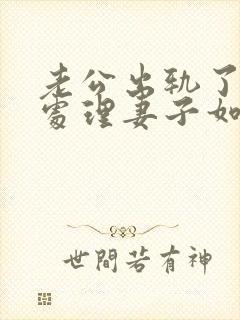 老公出轨了
處理妻子如
世間若有神